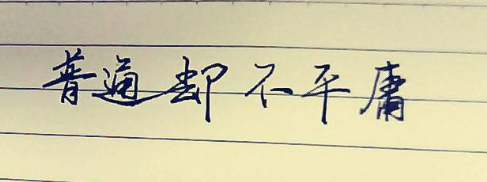 普通却不平庸